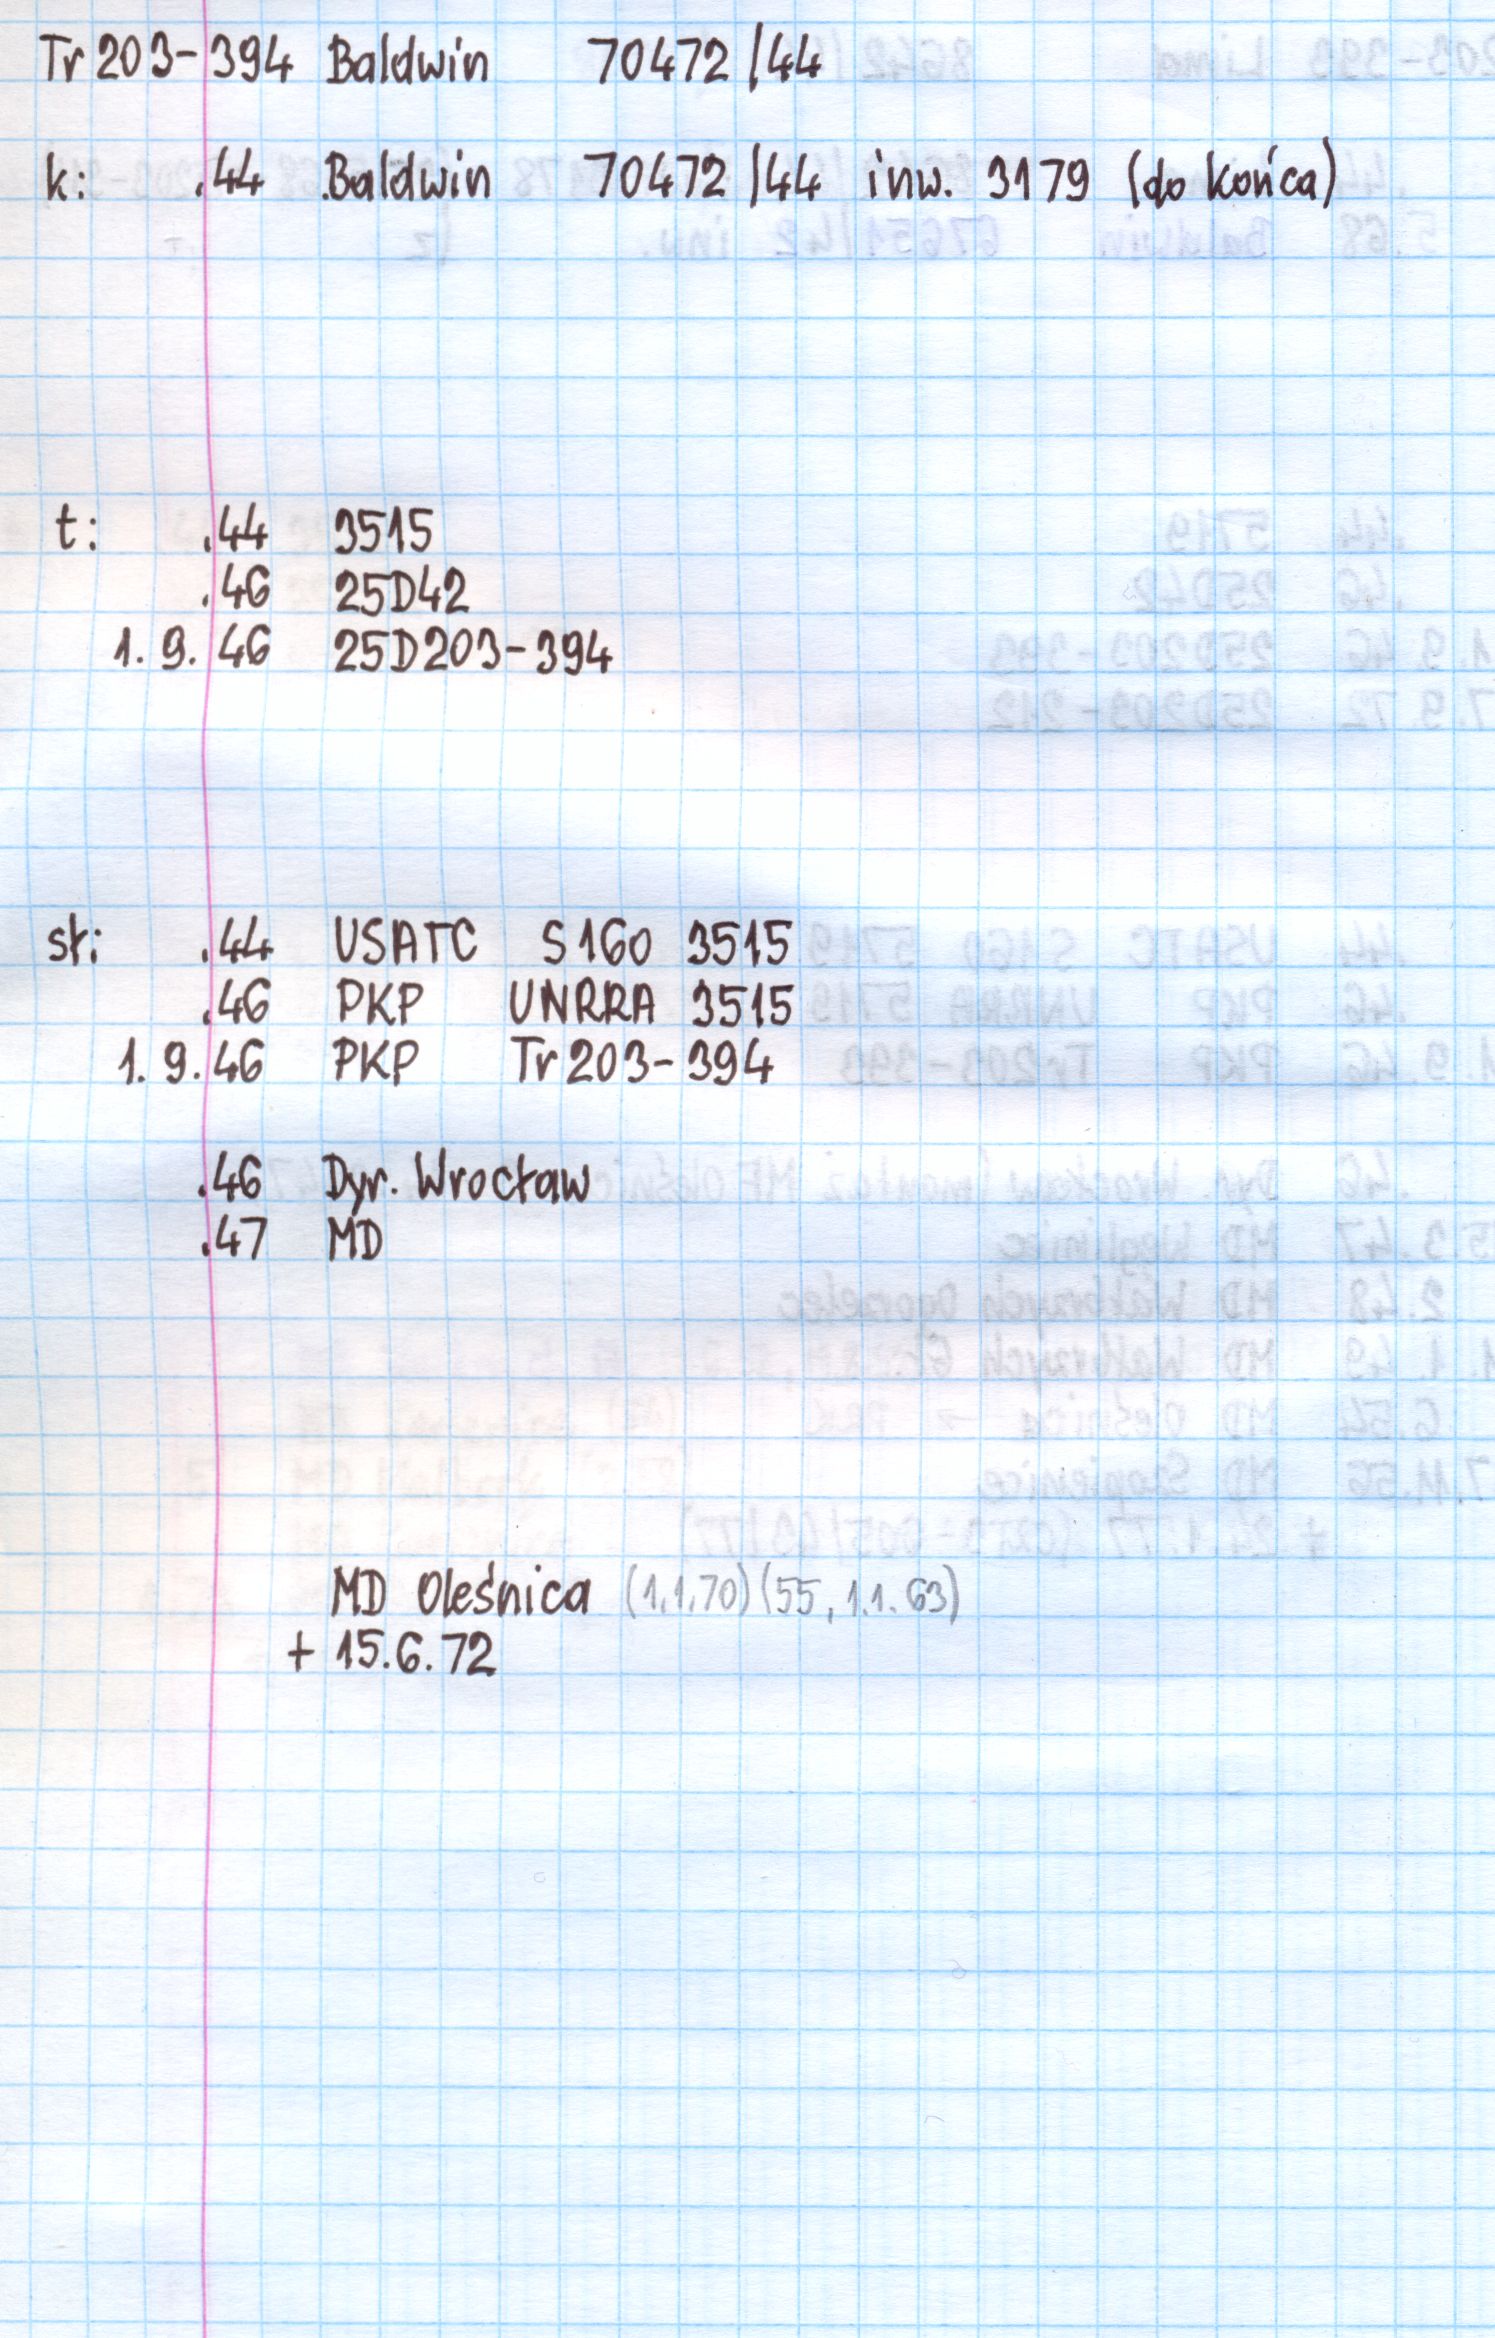 Tr 203-394 Baldwin 70472/44
k: .44 Baldwin 70472/44 inw. 3179 (do końca)
t: .44 3515
.46 25D42
1.9.46 25D203-394
sł: .44 USATC S160 3515
.46 PKP UNRRA 3515
1.9.46 PKP Tr 203-394
.46 Dyr. Wrocław
.47 MD
MD Oleśnica (1.1.70) (55, 1.1.63)
+ 15.6.72